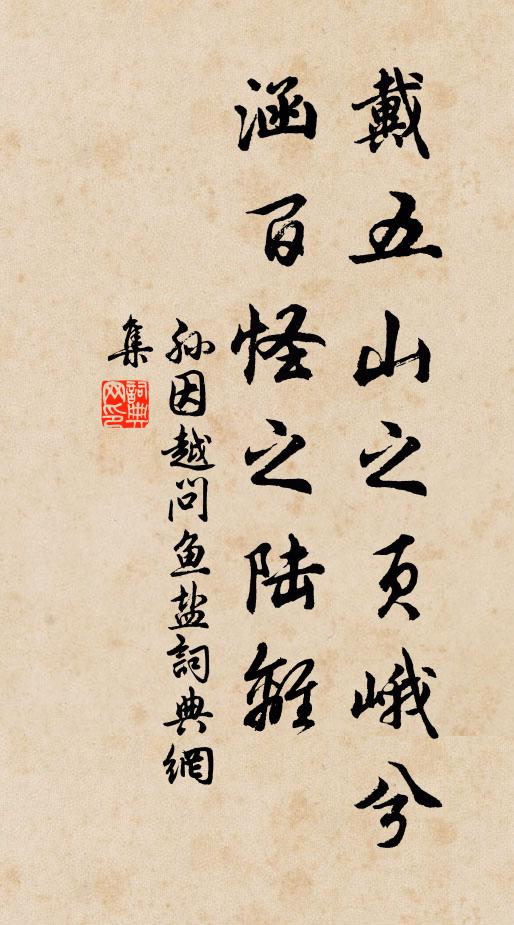 戴五山之页峨兮
涵百怪之陆離
孙因越问鱼盐詞典網
集
詞典网印